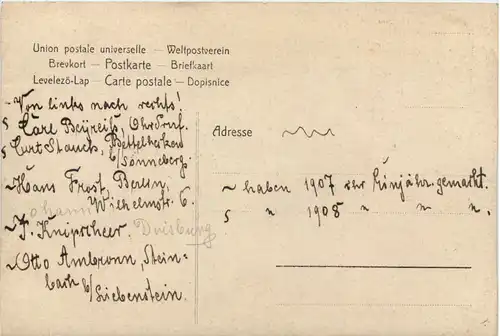 Union postale universelle — Weltpostverein
Brevkort — Postkarte — Briefkaart
Levelező-Lap — Carte postale — Dopisnice
~ Von links nach rechts!
s Carl Beyreiß, Ohrdruf.
s Curt Stauch, Bettelhecken
b/Sonneberg.
~ Hans Frost, Berlin,
Wilhelmstr. 6.
~ F. Kniprscheer. Duisburg
~ Otto Ambronn, Stein-
bach b/Liebenstein.
Adresse
~ haben 1907 ihr Einjähr. gemacht.
s " 1908 " " "